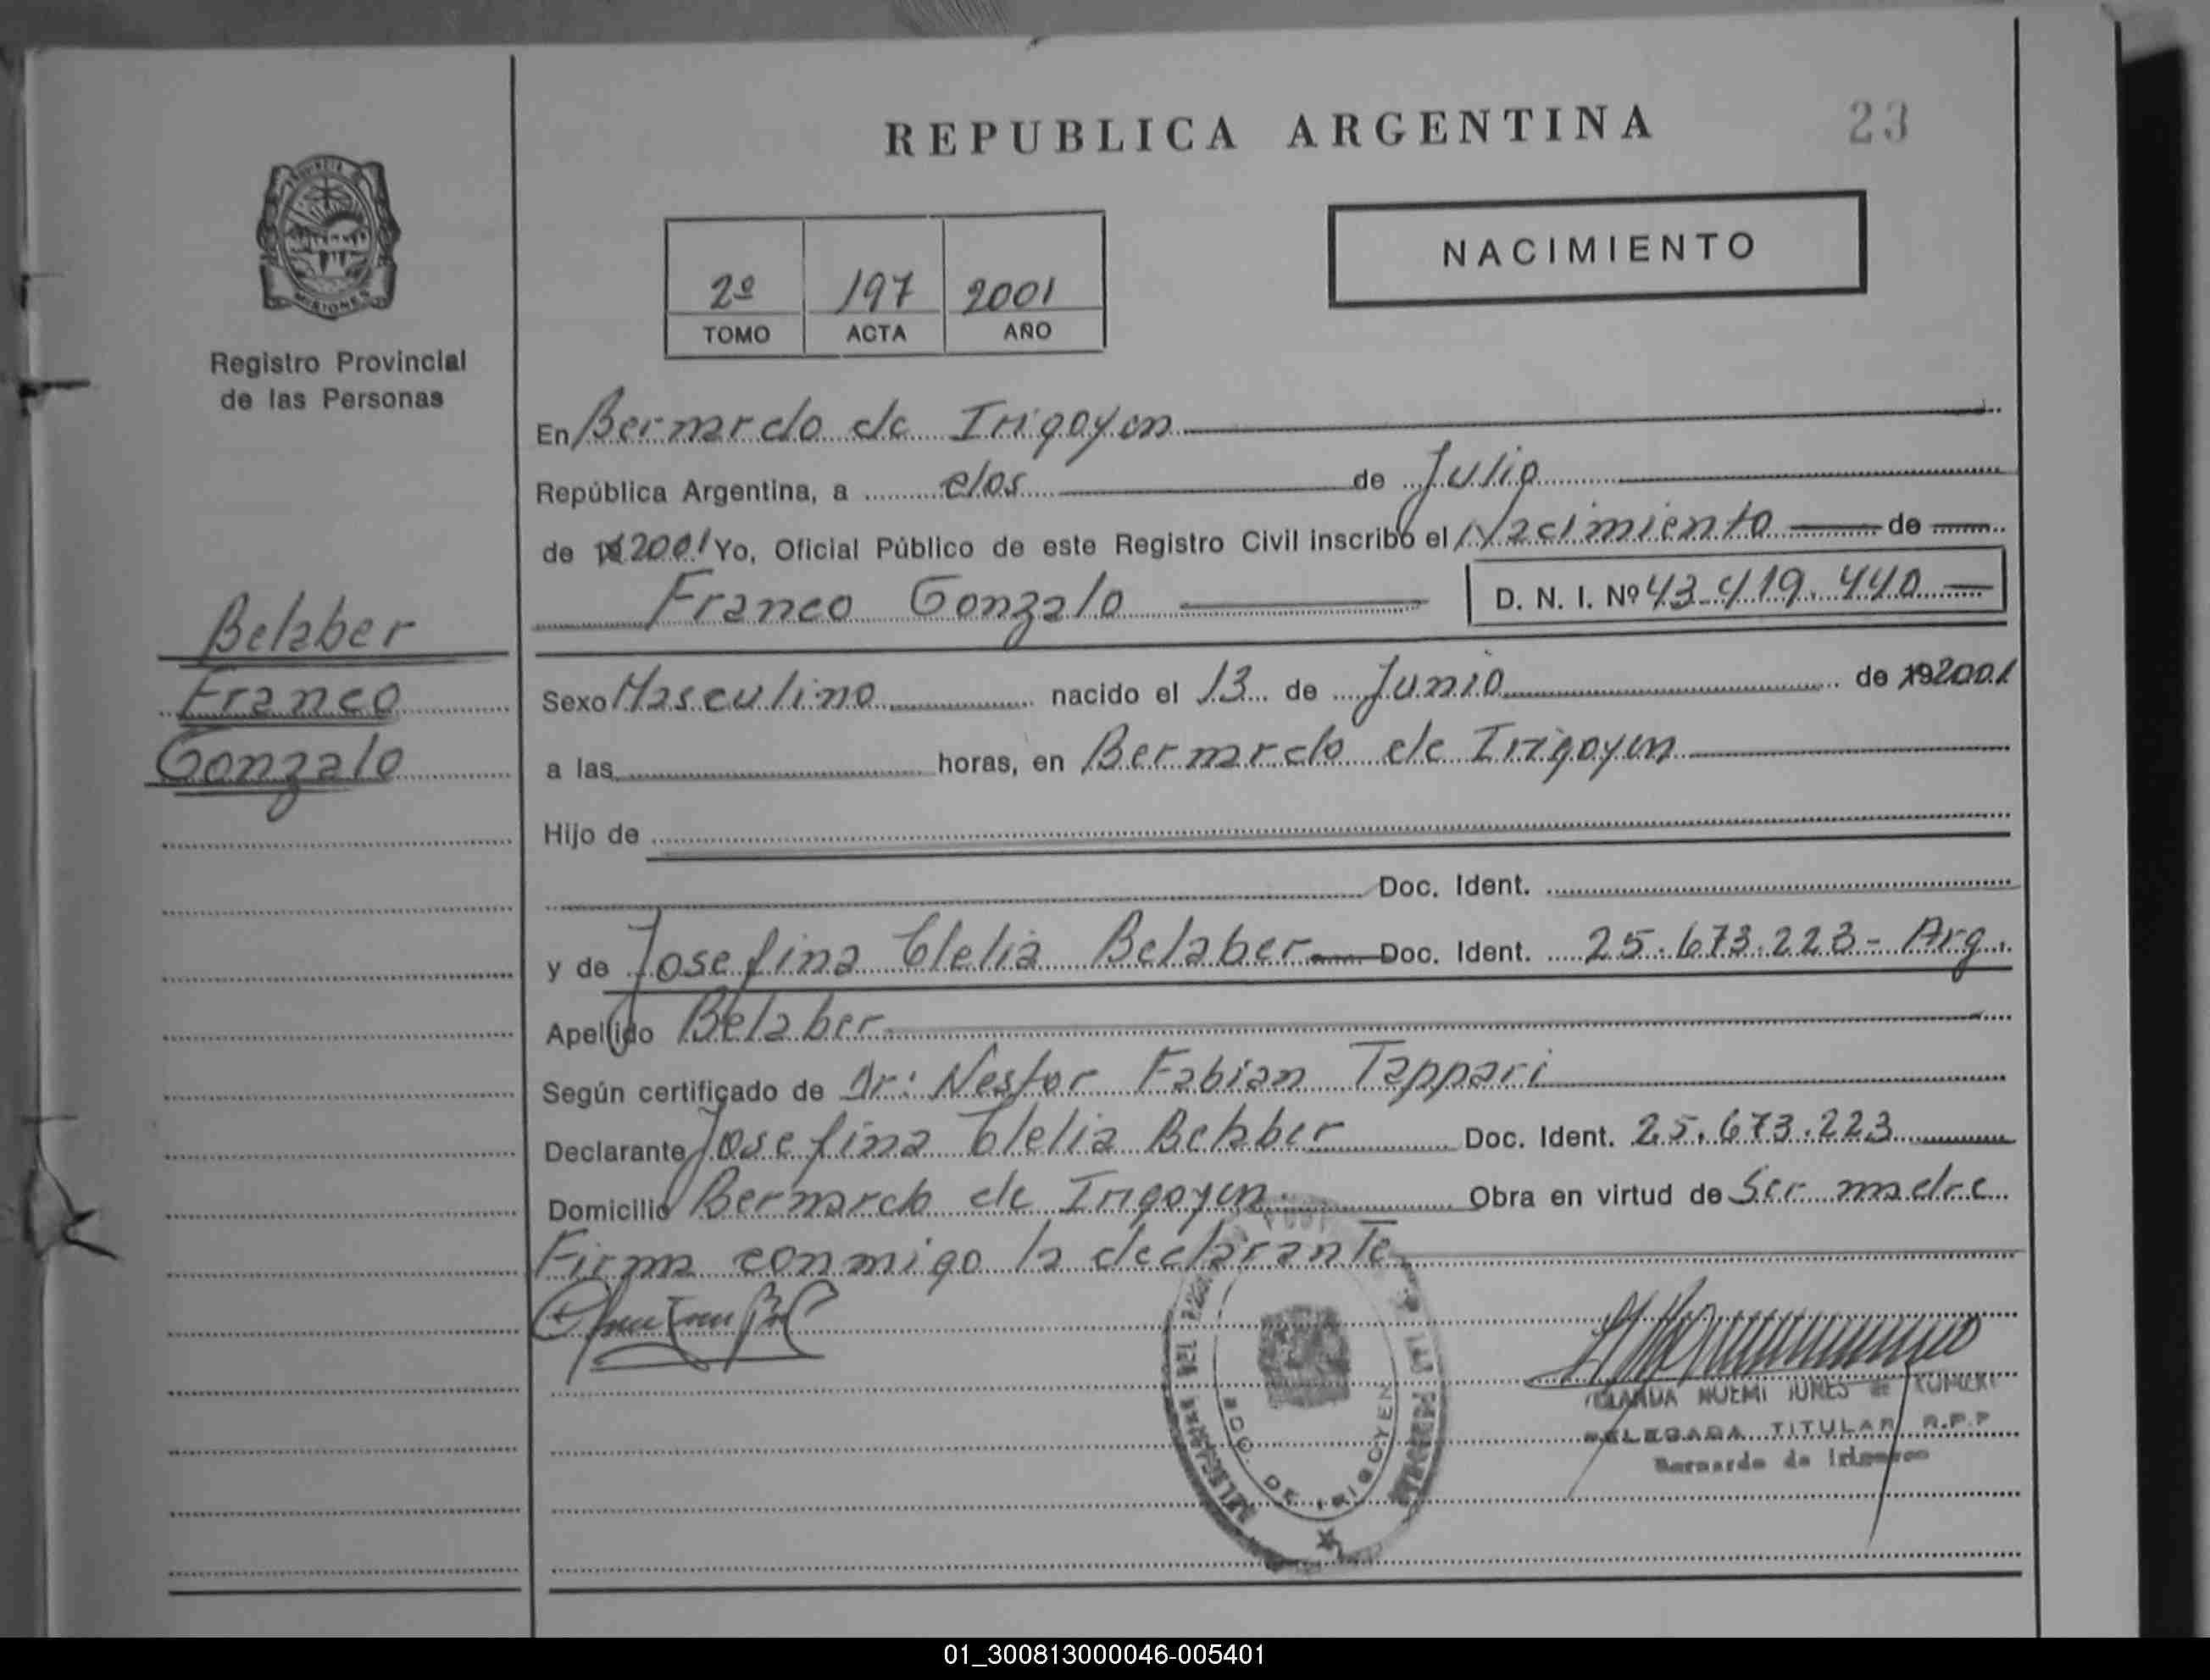 REPUBLICA ARGENTINA
23
PROVINCIA DE
MISIONES
Registro Provincial
de las Personas
NACIMIENTO
2º 197 2001
TOMO ACTA AÑO
En Bernardo de Irigoyen
República Argentina, a dos de Julio
de 2001 Yo, Oficial Público de este Registro Civil inscribo el Nacimiento de
Franco Gonzalo D. N. I. Nº 43.419.440
Belaber
Franco
Gonzalo
Sexo Masculino nacido el 13 de Junio de 192001
a las horas, en Bernardo de Irigoyen
Hijo de
Doc. Ident.
y de Josefina Clelia Belaber Doc. Ident. 25.673.223- Arg.
Apellido Belaber
Según certificado de Dr: Nestor Fabian Tappari
Declarante Josefina Clelia Belaber Doc. Ident. 25.673.223
Domicilio Bernardo de Irigoyen. Obra en virtud de Ser madre
Firma conmigo la declarante
BDO. DE IRIGOYEN
NOEMI
DELEGADA TITULAR R.P.P
Bernardo de Irigoyen
01_300813000046-005401